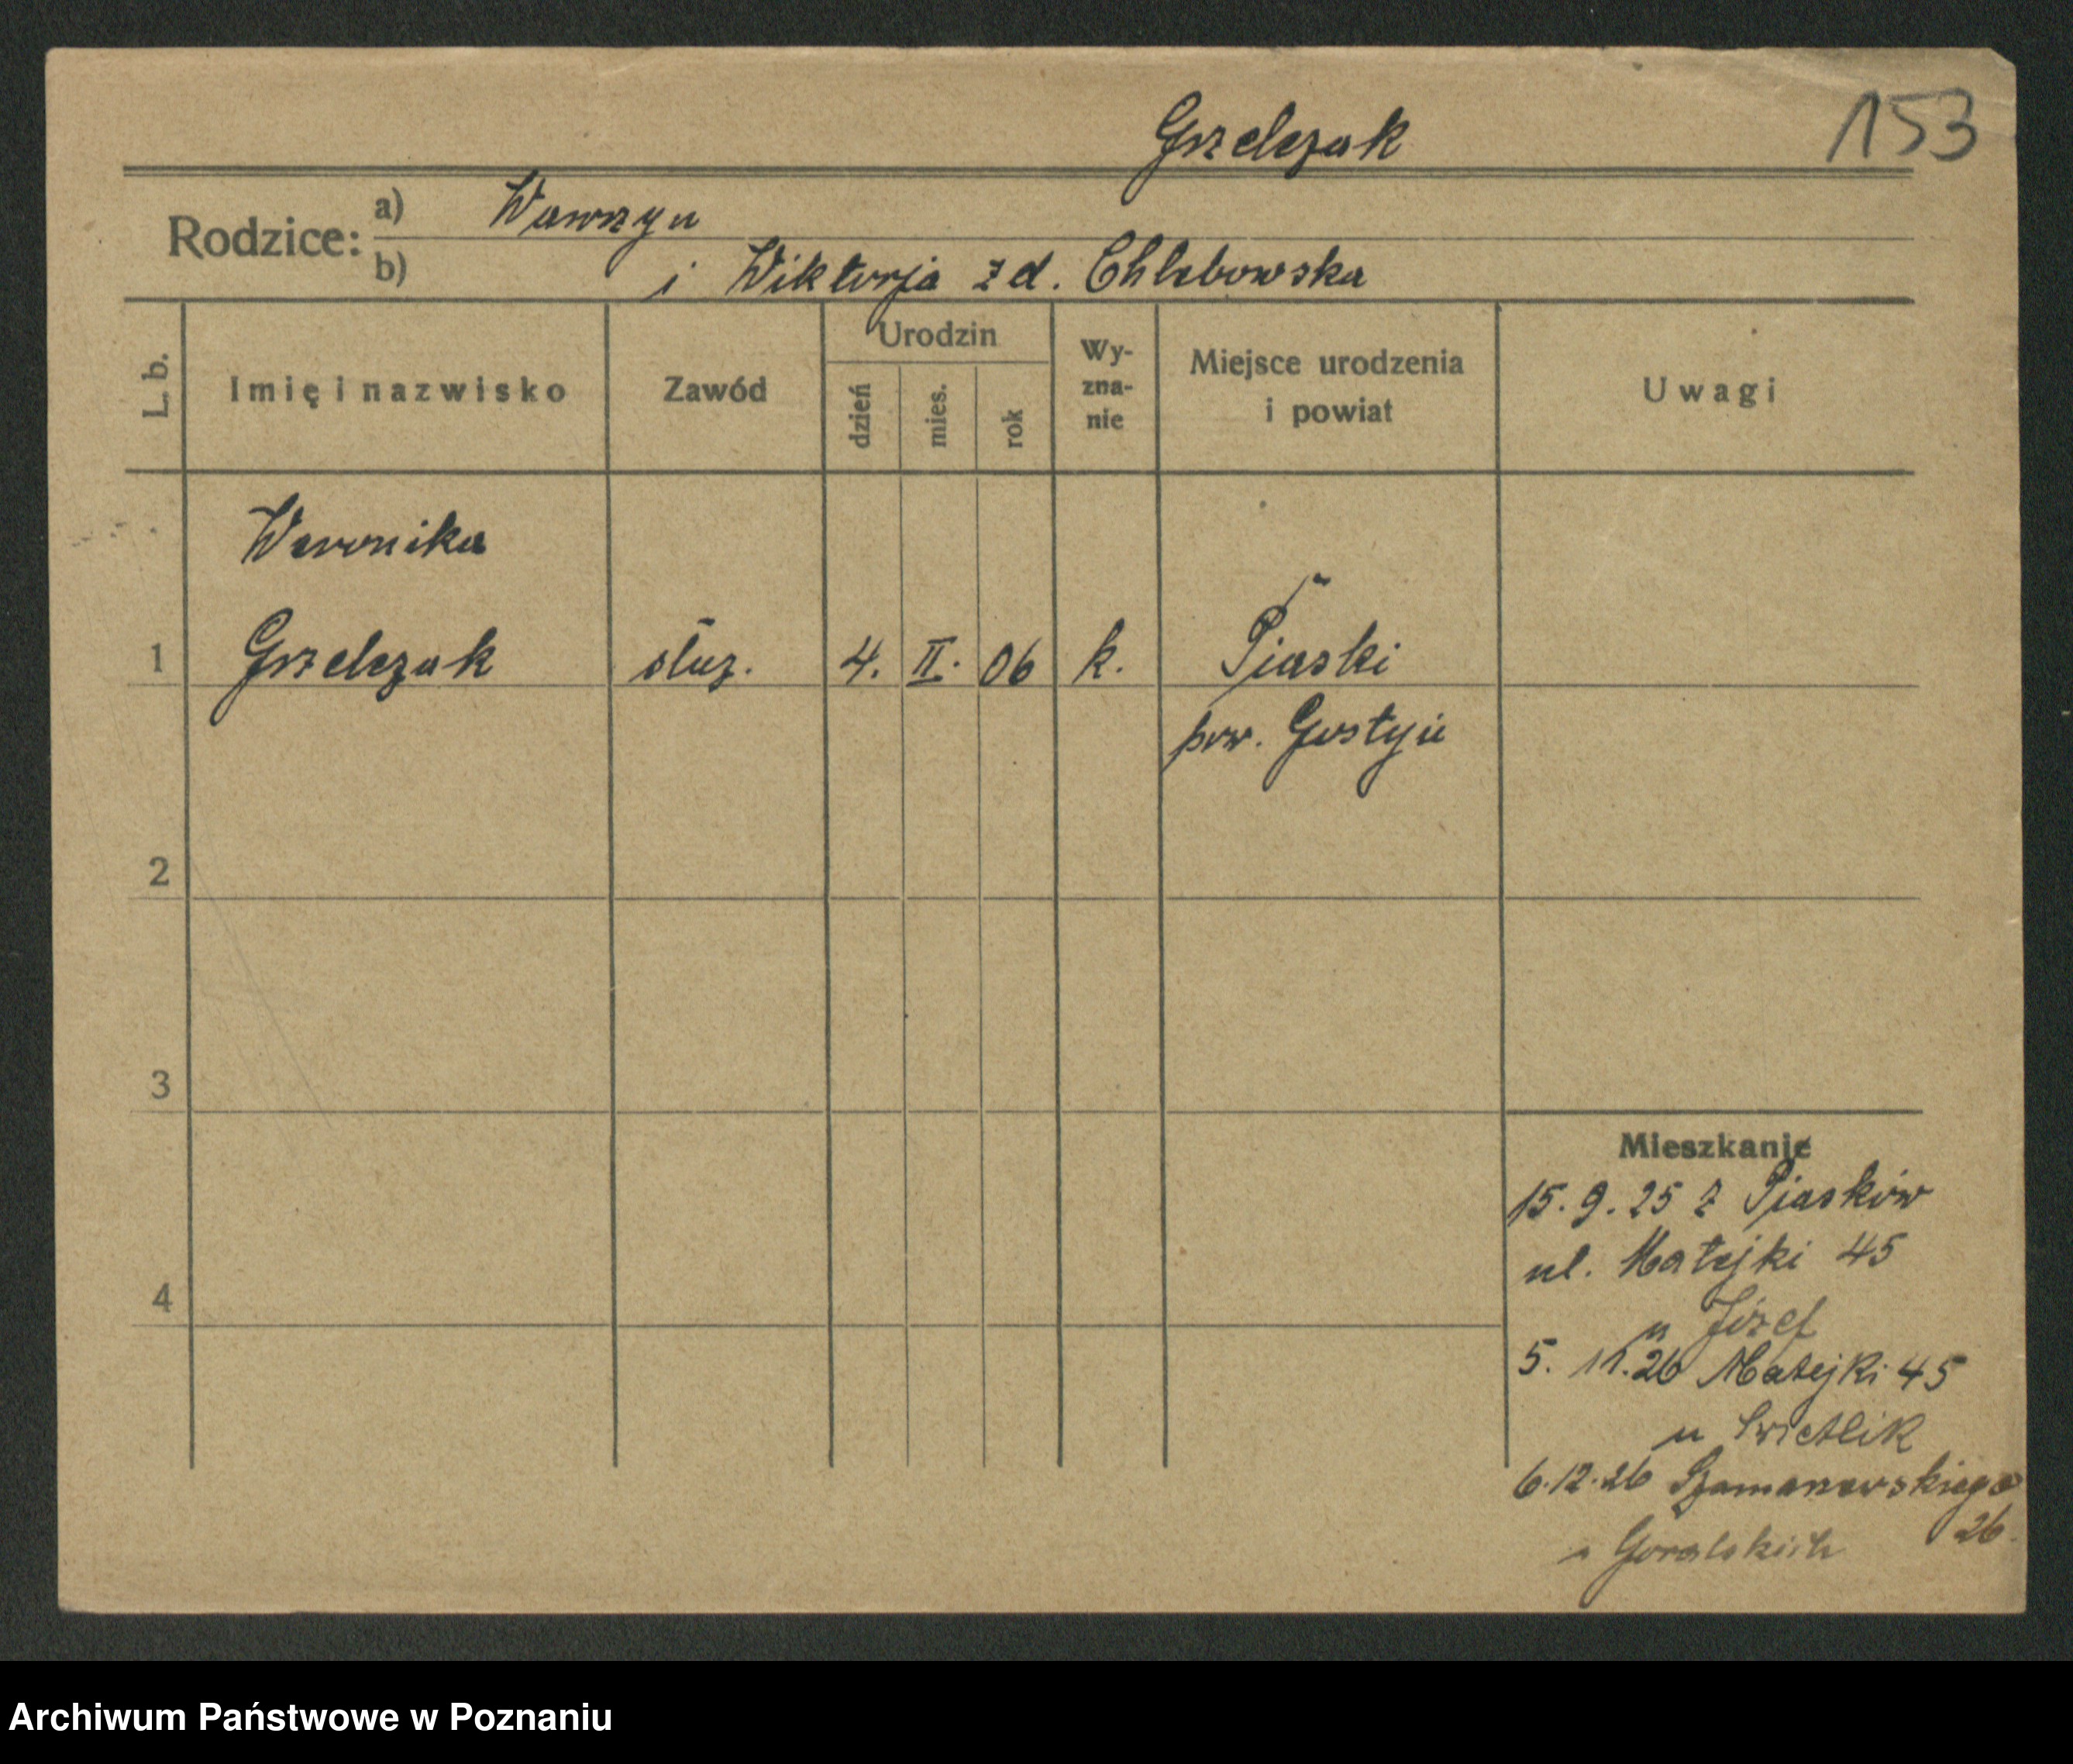 153
Grzelczak
Rodzice: a) Wawrzyn
b) i Wiktorja z d. Chlebowska
L. b. Imię i nazwisko Zawód Urodzin dzień mies. rok Wy-zna-nie Miejsce urodzenia i powiat Uwagi
Weronika
1 Grzelczak służ. 4. II. 06 k. Piaski
pow. Gostyń
2
3
Mieszkanie
15. 9. 25 z Piasków
ul. Matejki 45
4
u Józef
5. 11. 26 Matejki 45
u Świetlik
6. 12. 26 Szamarzewskiego
26.
u Góralskich
Archiwum Państwowe w Poznaniu